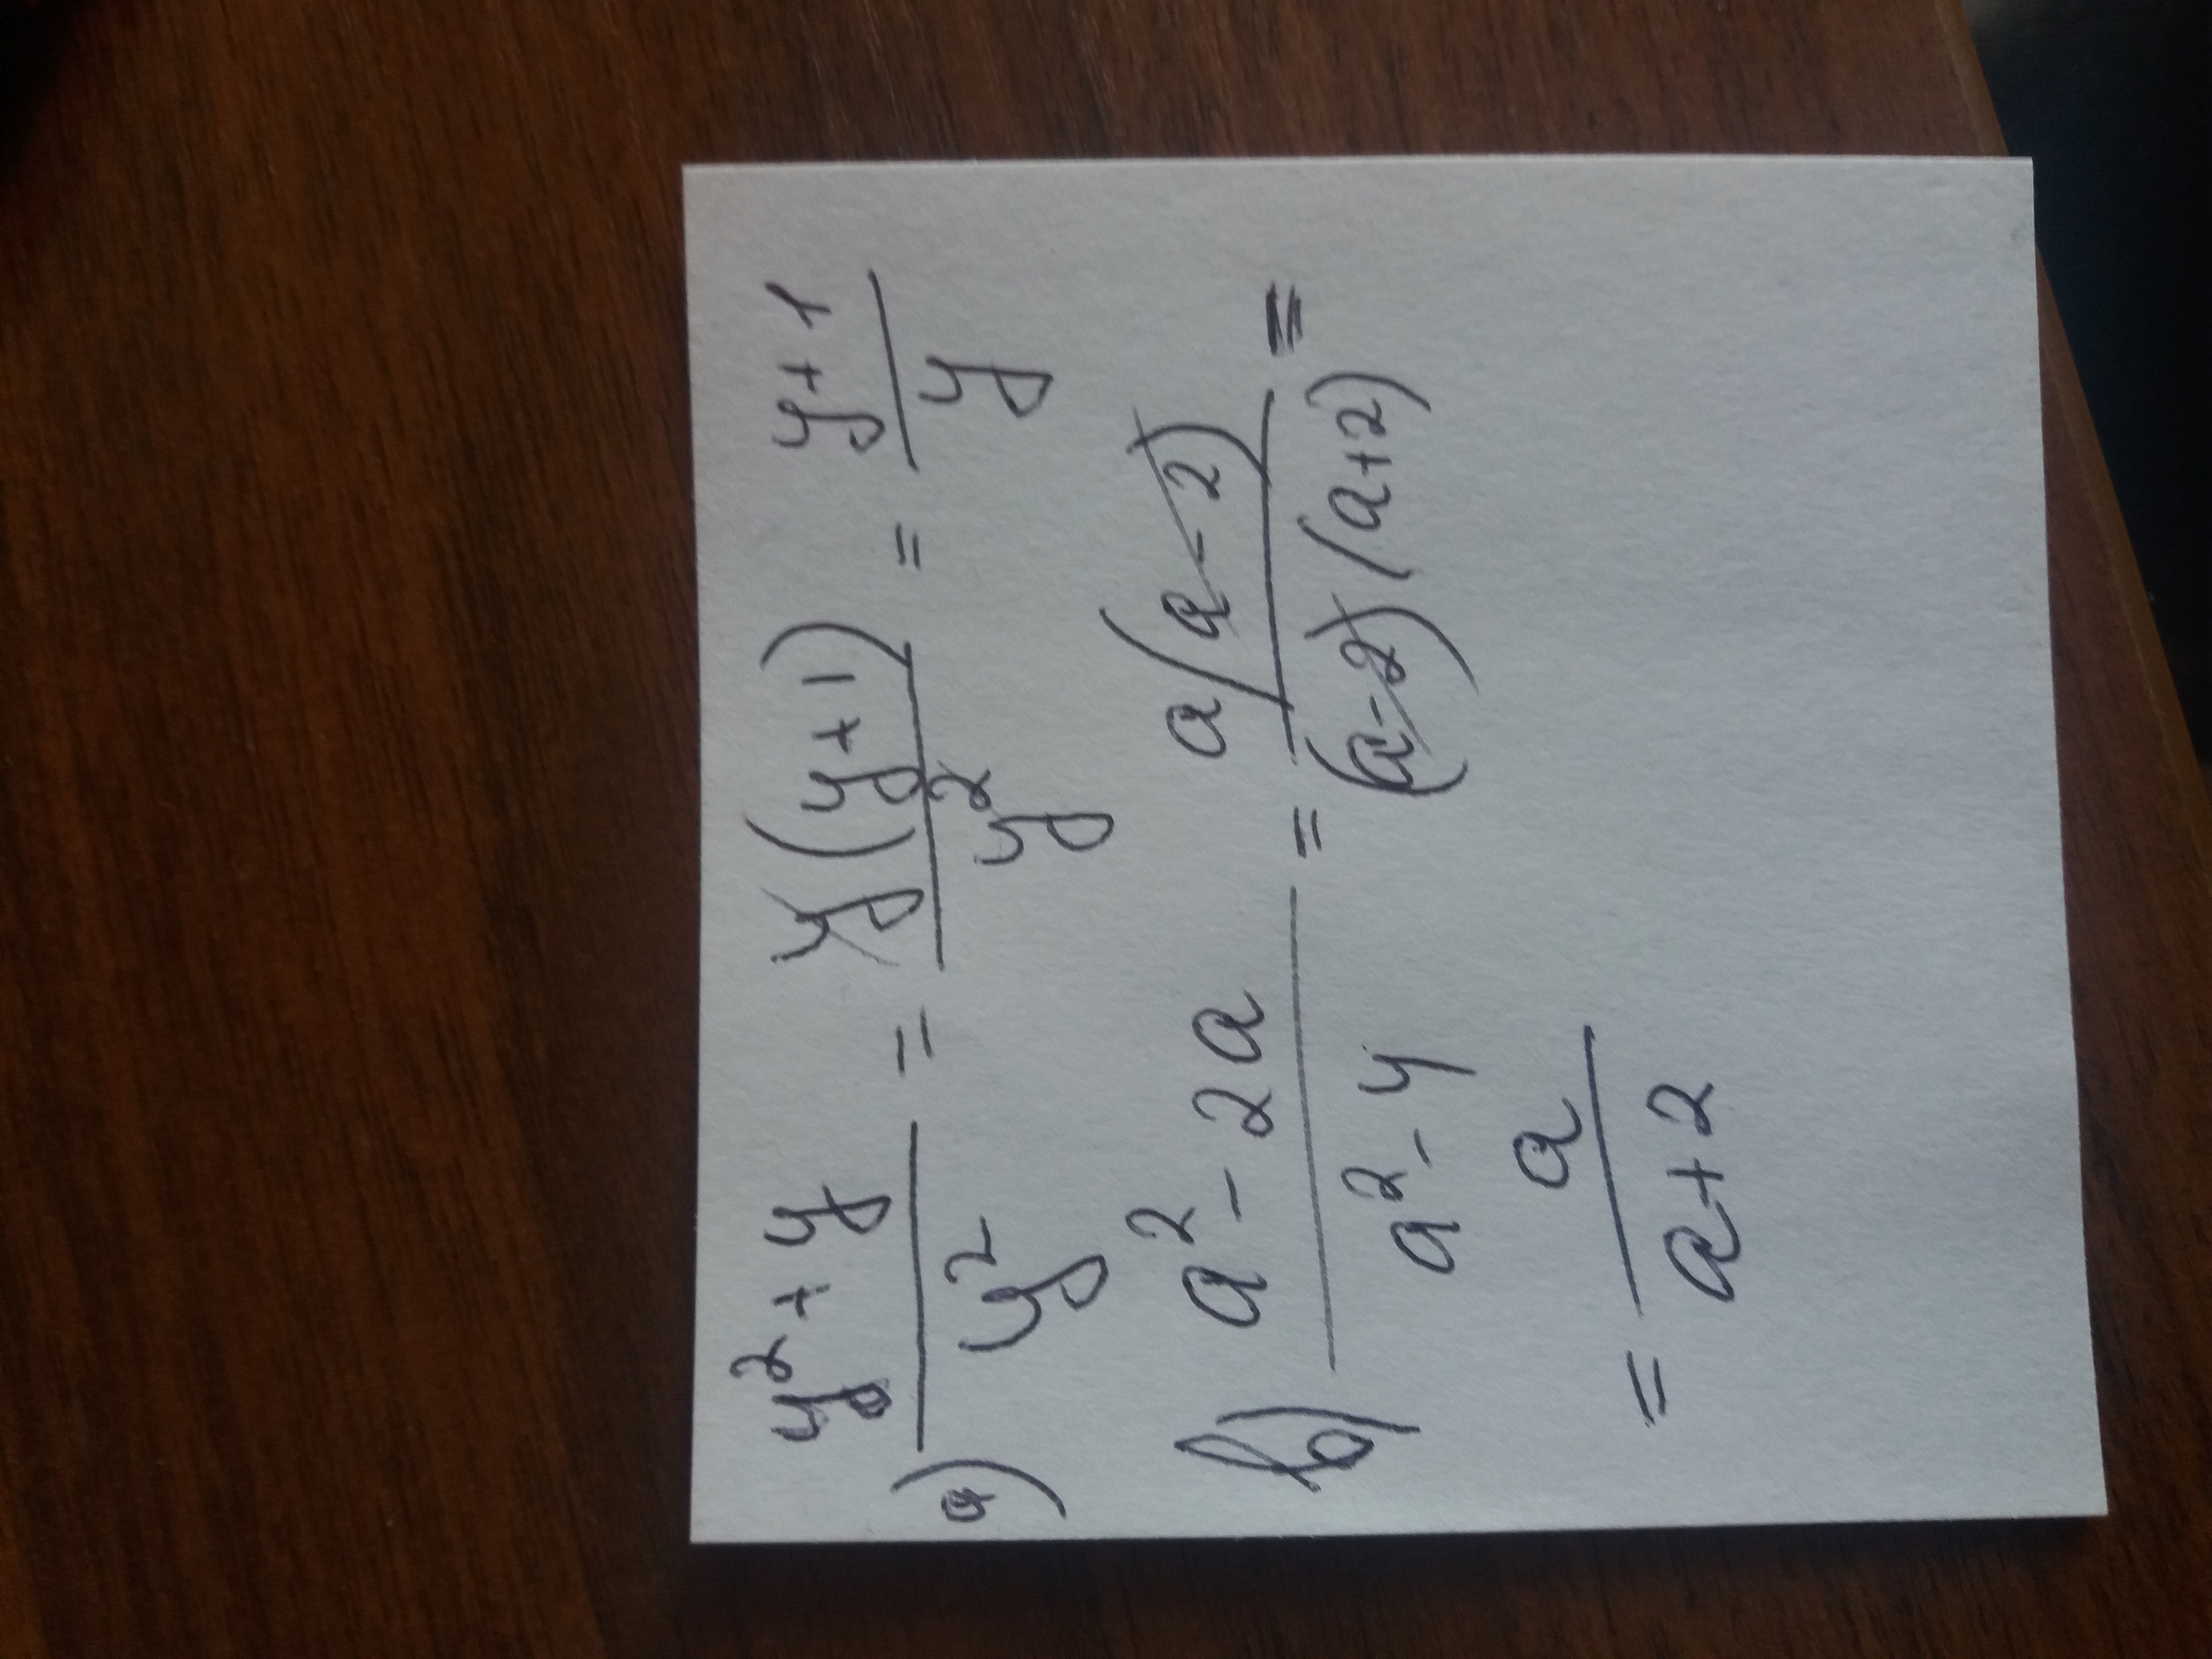 a) (y² + y)/y² = y(y+1)/y² = (y+1)/y
b) (a² - 2a)/(a² - 4) = a(a-2)/(a-2)(a+2) =
= a/(a+2)